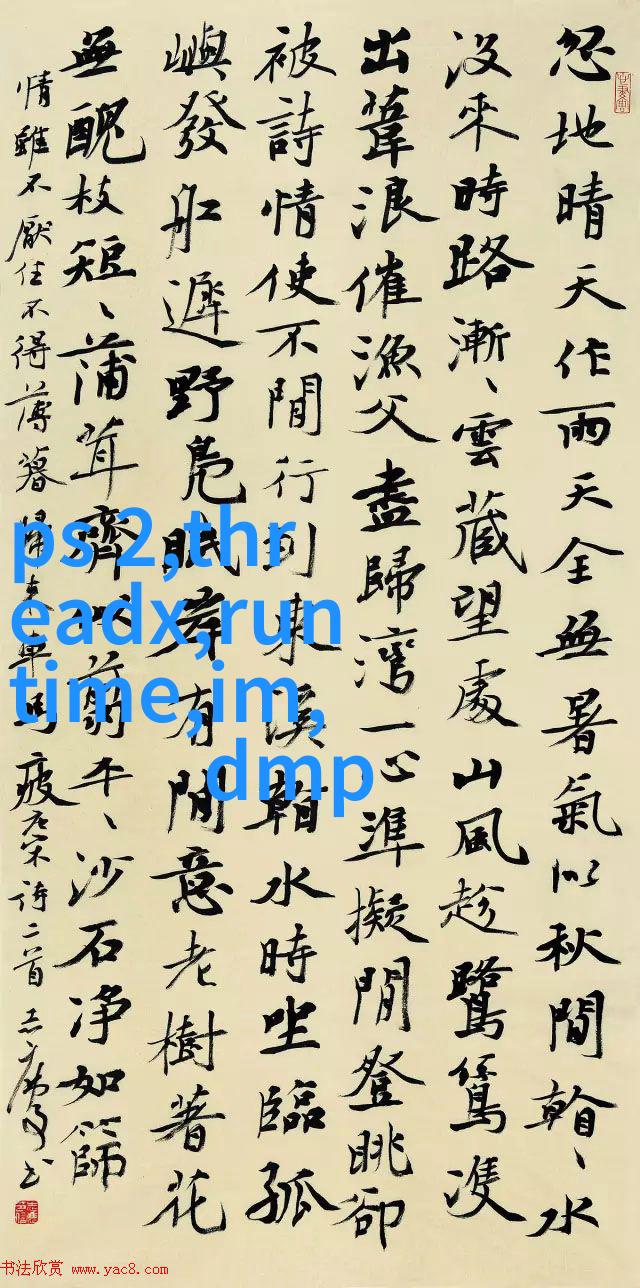 忽地晴天作雨天全無暑氣似秋間看〻水
沒來時路漸〻雲藏望處山風趁鷺鷥雙
出葦浪催漁父盡歸灣一心準擬閒登眺卻
被詩情使不閒行到東溪看水時坐臨孤
嶼發船遲野鳧眠岸有閒意老樹著花
無醜枝短〻蒲茸齊似翦平〻沙石淨如篩
情雖不厭住不得薄暮歸來車馬疲右宋詩二首
ps 2,thr
eadx,run
time,im,
dmp
书法欣赏 www.yac8.com